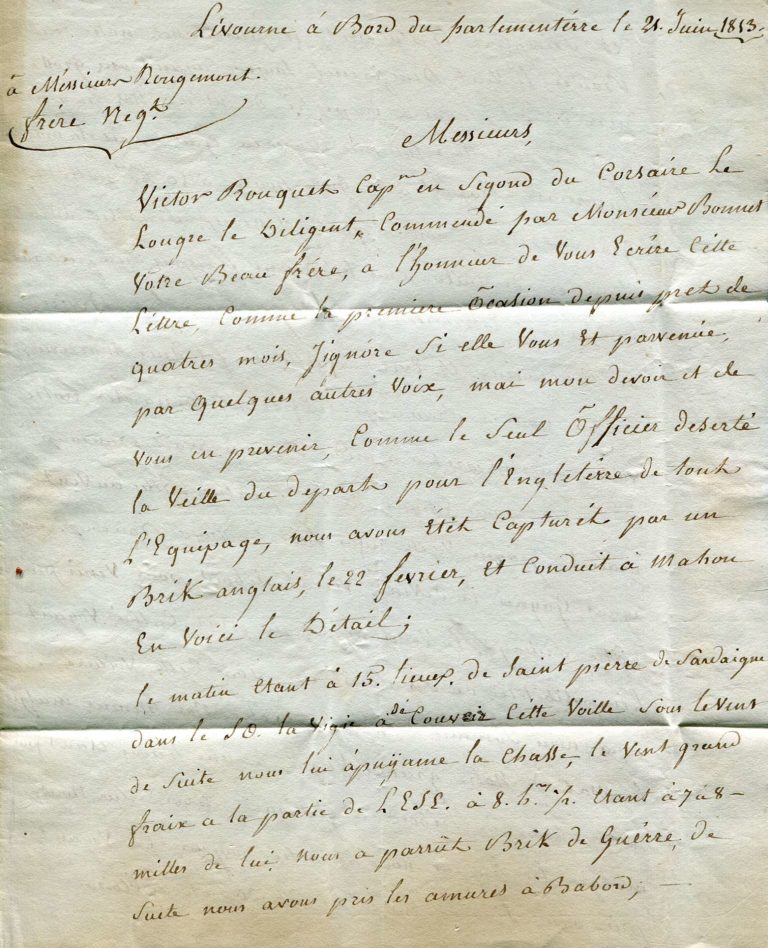 Livourne á Bord du parlementérre le 21. Juin 1813.
á Méssieurs Rougemont.
frére Negt
Messieurs,
Victor Rouquet Capne en Segond du Corsaire Le
Lougre le Diligent, Commendé par Monsiéur Bonnet
Votre Beau frére, á l'honneur de Vous Ecrire Cette
Léttre, Comme la premiere Ocasion depuis pret de
quatres mois, J'ignóre Si elle Vous Et parvenúe,
par quelques áutres Voix, mai mon devoir et de
Vous en prevenir, Comme le Seul Officier deserté
la Veille du depart pour l'Engletérre de tout
L'Equipage, nous avous Etét Capturét par un
Brik anglais, le 22 fevrier, et Conduit á Mahon
En Voici le Détail;
le matin Etant á 15. lieux. de Saint piérre de Sardaigne
dans le SO. la Vigie á Dé Couvert Cette Voille Sous le Vent
de Suite nous lui ápuÿame la Chasse, le Vent grand
fraix a la partie de L'ESE. á 8. hres ½. Etant á 7 á 8 -
milles de lui, Nous a parrût Brik de Guérre, de
Suite nous avous pris les amures á Babord; -